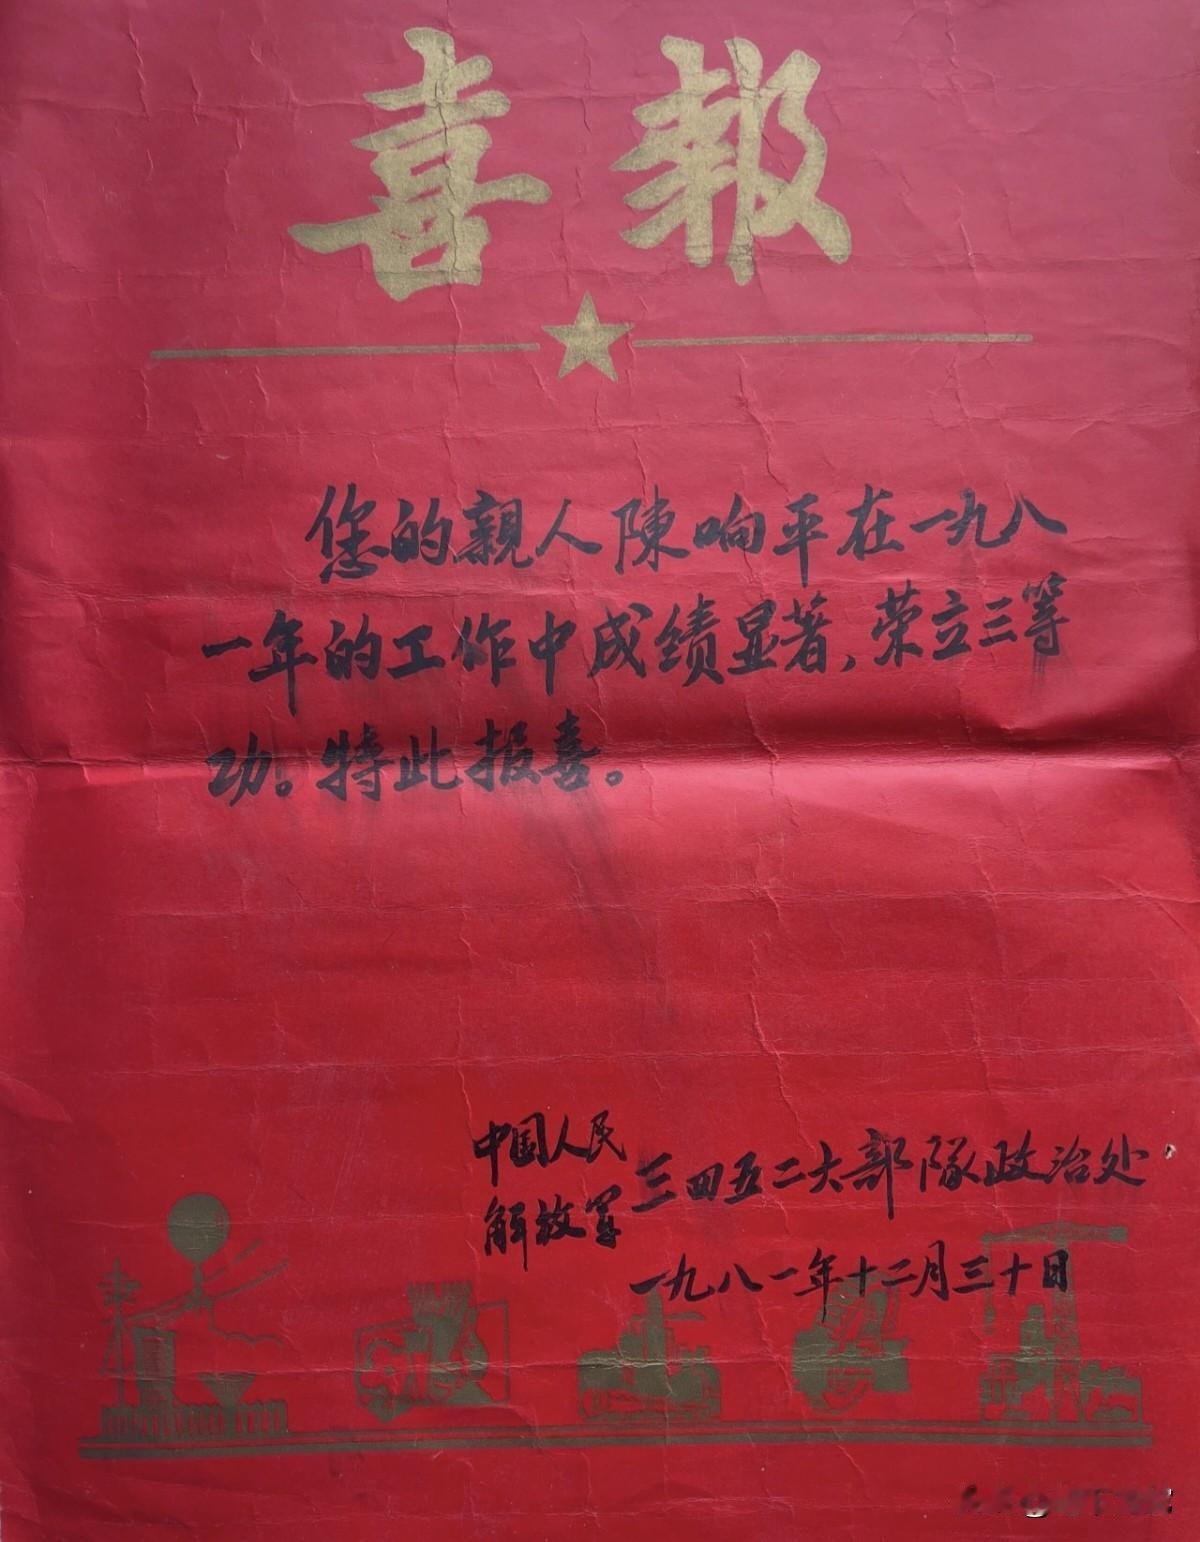 喜報
您的親人陳响平在一九八
一年的工作中成绩显著，荣立三等
功。特此报喜。
中国人民
解放军
三四五二大部隊政治处
一九八一年十二月三十日